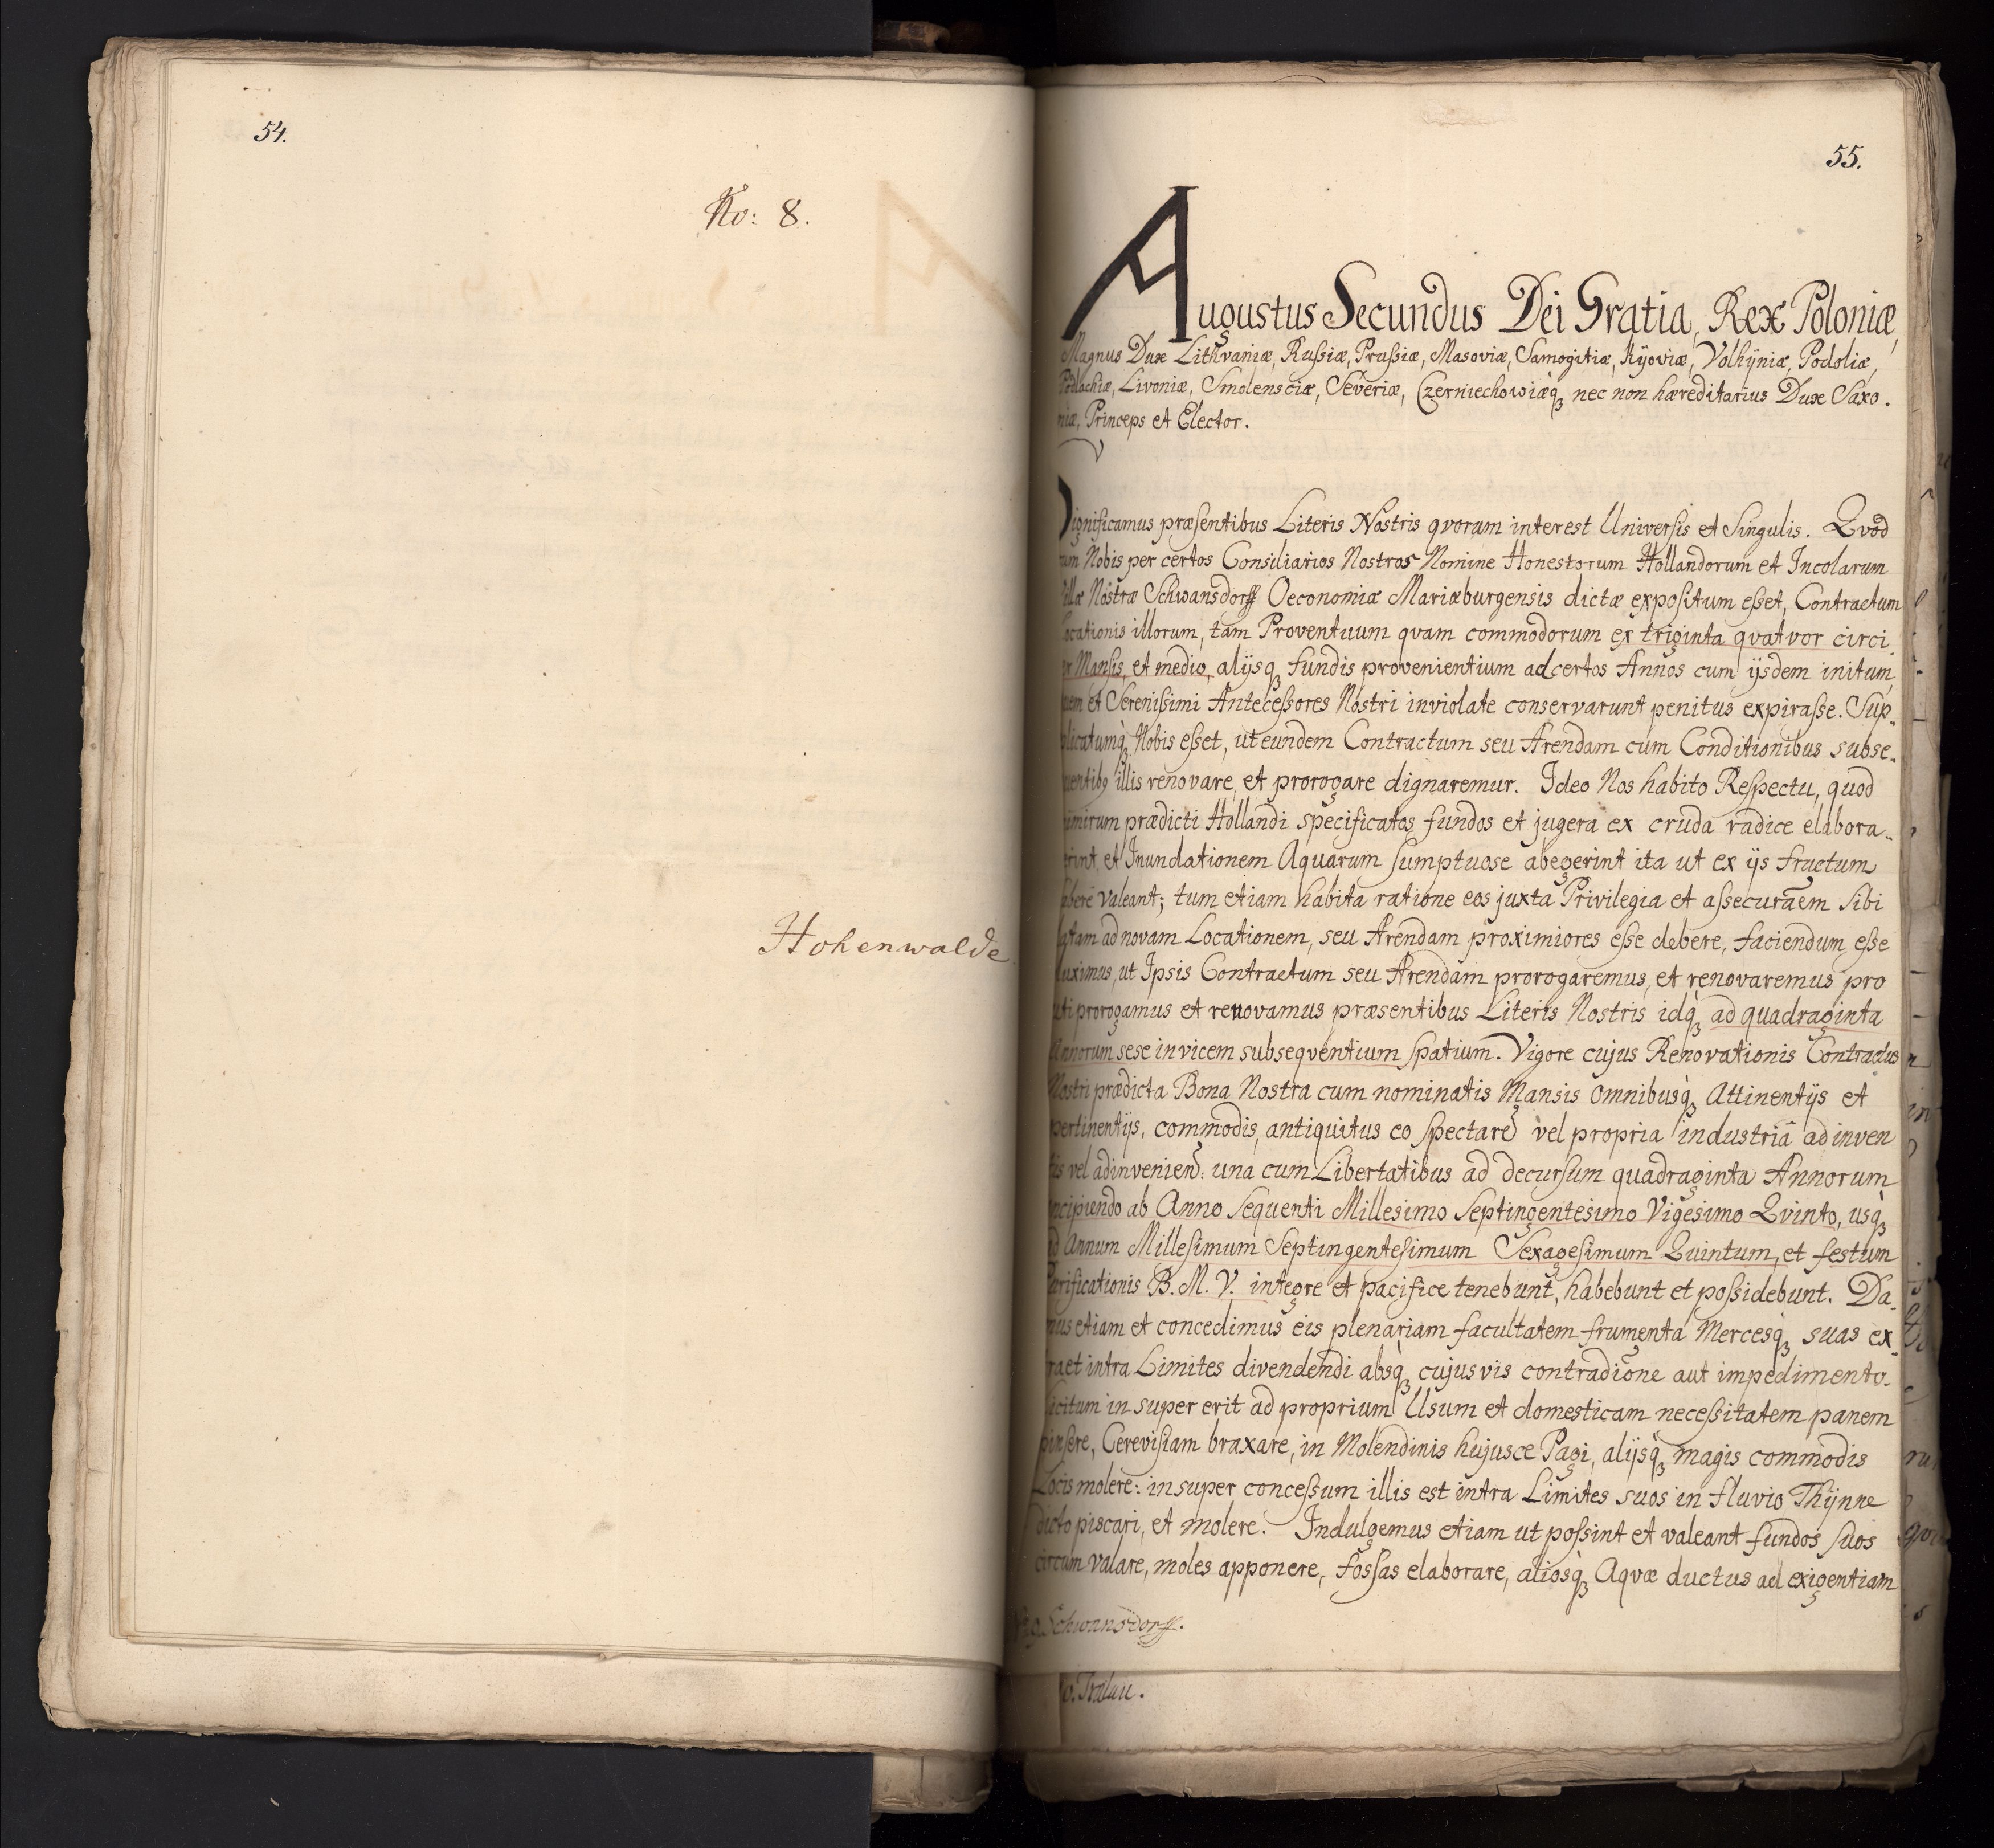 54.
No: 8.
Hohenwalde.
55.
Augustus Secundus Dei Gratia, Rex Poloniæ,
Magnus Dux Lithvaniæ, Rußiæ, Prußiæ, Masoviæ, Samogitiæ, Kÿoviæ, Volhÿniæ, Podoliæ,
Podlachiæ, Livoniæ, Smolensciæ, Severiæ, Czerniechowiæq, nec non hæreditarius Dux Saxo.
niæ, Princeps et Elector.
Significamus præsentibus Literis Nostris qvorum interest Universis et Singulis. Qvod
cum Nobis per certos Consiliarios Nostros Nomine Honestorum Hollandorum et Incolarum
Villæ Nostræ Schwansdorff Oeconomiæ Mariæburgensis dictæ expositum esset, Contractum
Locationis illorum, tam Proventuum qvam commodorum ex triginta qvatvor circi
ter Mansis, et medio, alÿsq fundis provenientium ad certos Annos cum ÿsdem initum,
quem et Serenißimi Anteceßores Nostri inviolate conservarunt penitus expiraße. Sup-
plicatumq Nobis eßet, ut eundem Contractum seu Arendam cum Conditionibus subse-
quentibq illis renovare, et prorogare dignaremur. Ideo Nos habito Respectu, quod
nimirum prædicti Hollandi specificatos fundos et jugera ex cruda radice elabora-
erint, et Inundationem Aquarum sumptuose abegerint ita ut ex ÿs fructum
habere valeant; tum etiam habita ratione eos juxta Privilegia et aßecuraem sibi
datam ad novam Locationem, seu Arendam proximiores eße debere, faciendum eße
duximus, ut Ipsis Contractum seu Arendam prorogaremus, et renovaremus pro
uti prorogamus et renovamus præsentibus Literis Nostris idq ad quadraginta
Annorum sese invicem subseqventium spatium. Vigore cujus Renovationis Contractus
Nostri prædicta Bona Nostra cum nominatis Mansis omnibusq Attinentÿs et
pertinentÿs, commodis, antiquitus eo spectare vel propria industriâ adinven
tis vel adinvenien: una cum Libertatibus ad decursum quadraginta Annorum
incipiendo ab Anno sequenti Millesimo Septingentesimo Vigesimo Qvinto, usq
ad Annum Millesimum Septingentesimum Sexagesimum Quintum, et festum
Purificationis B. M. V. integre et pacifice tenebunt, habebunt et poßidebunt. Da-
mus etiam et concedimus eis plenariam facultatem frumenta Mercesq suas ex-
tra et intra Limites divendendi absq cujusvis contradione aut impedimento.
Licitum insuper erit ad proprium Usum et domesticam neceßitatem panem
pinsere, Cerevisiam braxare, in Molendinis hujusce Pagi, alÿsq magis commodis
Locis molere: insuper conceßum illis est intra Limites suos in fluvio Thÿnne
dicto piscari, et molere. Indulgemus etiam ut poßint et valeant fundos suos
circum valare, moles apponere, foßas elaborare, aliosq Aqvæ ductus ad exigentiam
Schwansdorff.
Tralau.